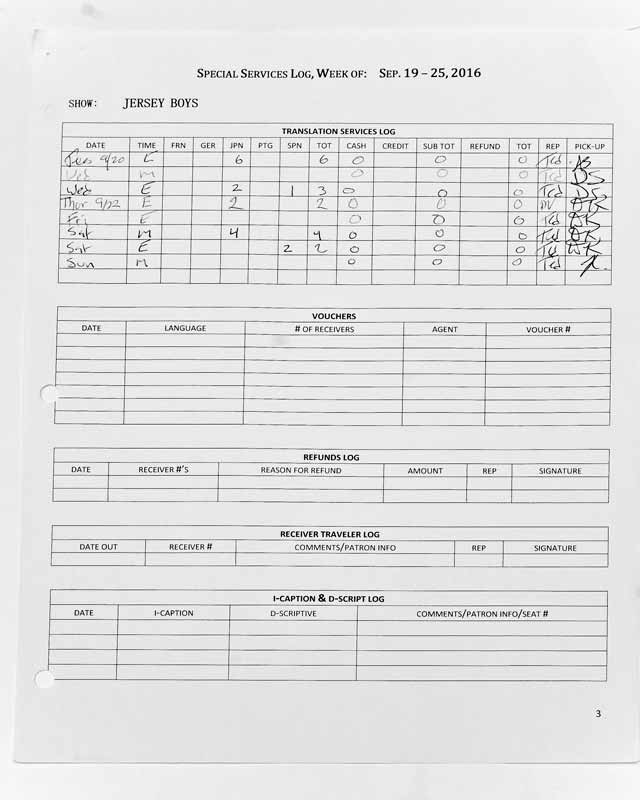 SPECIAL SERVICES LOG, WEEK OF: SEP. 19 – 25, 2016
SHOW: JERSEY BOYS
TRANSLATION SERVICES LOG
DATE TIME FRN GER JPN PTG SPN TOT CASH CREDIT SUB TOT REFUND TOT REP PICK-UP
Tues 9/20 E 6 6 0 0 0 Ted
Wed M 0 0 0 Ted DS
Wed E 2 1 3 0 0 0 Ted DS
Thur 9/22 E 2 2 0 0 0
Fri E 0 0 0 Ted
Sat M 4 4 0 0 0 Ted
Sat E 2 2 0 0 0 Ted
Sun M 0 0 0 Ted
VOUCHERS
DATE LANGUAGE # OF RECEIVERS AGENT VOUCHER #
REFUNDS LOG
DATE RECEIVER #'S REASON FOR REFUND AMOUNT REP SIGNATURE
RECEIVER TRAVELER LOG
DATE OUT RECEIVER # COMMENTS/PATRON INFO REP SIGNATURE
I-CAPTION & D-SCRIPT LOG
DATE I-CAPTION D-SCRIPTIVE COMMENTS/PATRON INFO/SEAT #
3